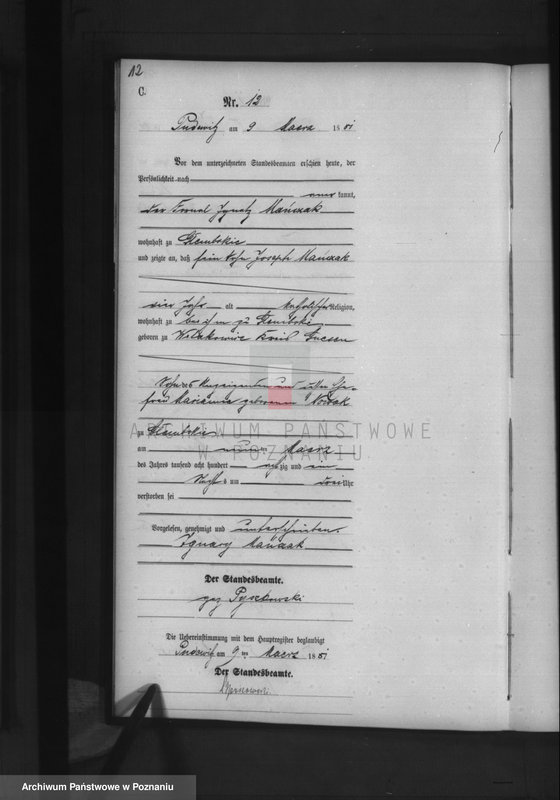 12
C.
Nr. 12
Pudewitz am 9 Maerz 1881
Vor dem unterzeichneten Standesbeamten erschien heute, der
Persönlichkeit nach
kannt,
der Fornal Ignatz Mańczak
wohnhaft zu Glembokie
und zeigte an, daß sein Sohn Joseph Mańczak
vier Jahr alt katholischer Religion,
wohnhaft zu bei ihm zu Glembokie
geboren zu Kreis Gnesen
Sohn des Anzeigenden und Ehe-
frau Marianna geborenen Nowak
zu Glembokie
am neunten Maerz
des Jahres tausend acht hundert achtzig und ein
Nachts um drei Uhr
verstorben sei
Vorgelesen, genehmigt und unterschrieben.
Ignacy Mańczak
Der Standesbeamte.
gez
Die Uebereinstimmung mit dem Hauptregister beglaubigt
Pudewitz am 9ten Maerz 1881
Der Standesbeamte.
ARCHIWUM PAŃSTWOWE
W POZNANIU
Archiwum Państwowe w Poznaniu